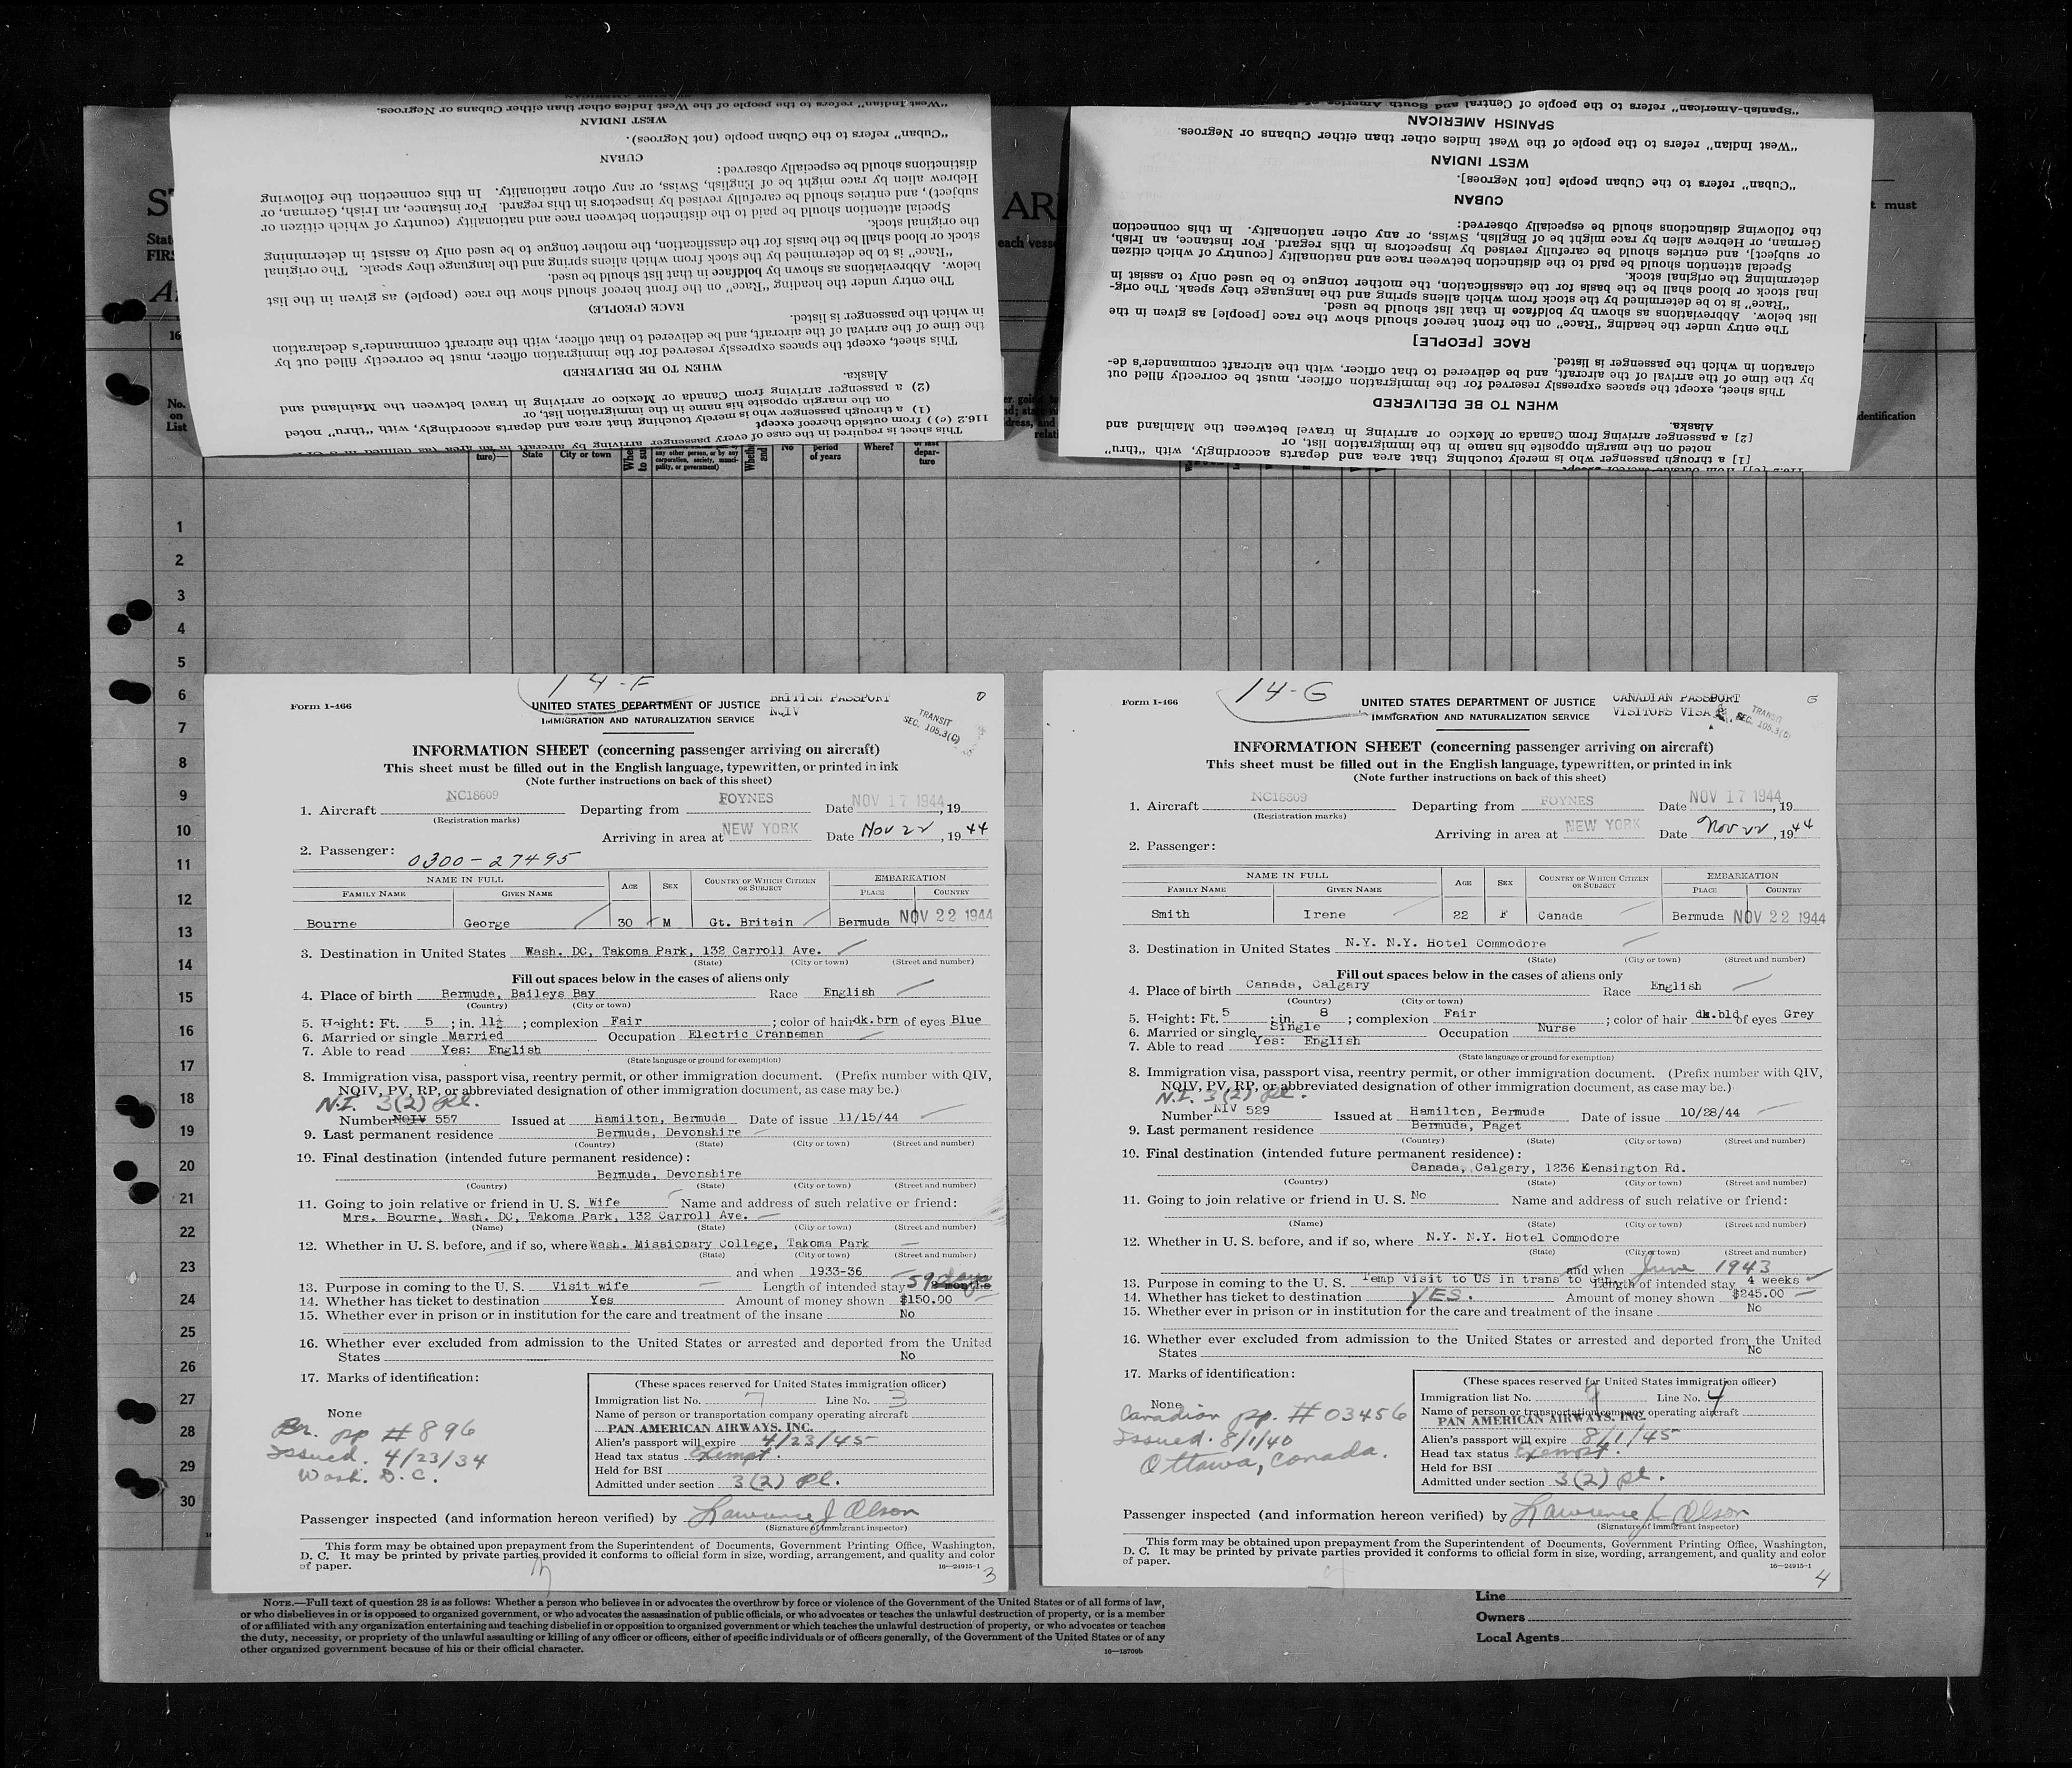 "West Indian" refers to the people of the West Indies other than either Cubans or Negroes.
WEST INDIAN
"Cuban" refers to the Cuban people (not Negroes).
CUBAN
distinctions should be especially observed:
Hebrew alien by race might be of English, Swiss, or any other nationality. In this connection the following
subject), and entries should be carefully revised by inspectors in this regard. For instance, an Irish, German, or
Special attention should be paid to the distinction between race and nationality (country of which citizen or
the original stock.
stock or blood shall be the basis for the classification, the mother tongue to be used only to assist in determining
"Race" is to be determined by the stock from which aliens spring and the language they speak. The original
below. Abbreviations as shown by boldface in that list should be used.
The entry under the heading "Race" on the front hereof should show the race (people) as given in the list
RACE (PEOPLE)
in which the passenger is listed.
the time of the arrival of the aircraft, and be delivered to that officer, with the aircraft commander's declaration
This sheet, except the spaces expressly reserved for the immigration officer, must be correctly filled out by
WHEN TO BE DELIVERED
Alaska.
(2) a passenger arriving from Canada or Mexico or arriving in travel between the Mainland and
on the margin opposite his name in the immigration list, or
(1) a through passenger who is merely touching that area and departs accordingly, with "thru" noted
116.2 (c)) from outside thereof except
This sheet is required in the case of every passenger arriving by aircraft in an area (as defined in
"Spanish-American" refers to the people of Central and South America
SPANISH AMERICAN
"West Indian" refers to the people of the West Indies other than either Cubans or Negroes.
WEST INDIAN
"Cuban" refers to the Cuban people [not Negroes].
CUBAN
the following distinctions should be especially observed:
German, or Hebrew alien by race might be of English, Swiss, or any other nationality. In this connection
or subject], and entries should be carefully revised by inspectors in this regard. For instance, an Irish,
Special attention should be paid to the distinction between race and nationality [country of which citizen
determining the original stock.
inal stock or blood shall be the basis for the classification, the mother tongue to be used only to assist in
"Race" is to be determined by the stock from which aliens spring and the language they speak. The orig-
list below. Abbreviations as shown by boldface in that list should be used.
The entry under the heading "Race" on the front hereof should show the race [people] as given in the
RACE [PEOPLE]
claration in which the passenger is listed.
by the time of the arrival of the aircraft, and be delivered to that officer, with the aircraft commander's de-
This sheet, except the spaces expressly reserved for the immigration officer, must be correctly filled out
WHEN TO BE DELIVERED
Alaska.
[2] a passenger arriving from Canada or Mexico or arriving in travel between the Mainland and
noted on the margin opposite his name in the immigration list, or
[1] a through passenger who is merely touching that area and departs accordingly, with "thru"
116.2 [c]] from outside thereof except
AR
must
each vess
16
No.
on
List
identification
ture)—
State
City or town
any other person, or by any
corporation, society, munci-
pality, or government)
No
period
of years
Where?
depar-
ture
1
2
3
4
5
6
7
8
9
10
11
12
13
14
15
16
17
18
19
20
21
22
23
24
25
26
27
28
29
30
14-F
Form I-466
UNITED STATES DEPARTMENT OF JUSTICE
IMMIGRATION AND NATURALIZATION SERVICE
BRITISH PASSPORT
NQIV
TRANSIT
SEC. 105.3(C)
INFORMATION SHEET (concerning passenger arriving on aircraft)
This sheet must be filled out in the English language, typewritten, or printed in ink
(Note further instructions on back of this sheet)
1. Aircraft NC18609 Departing from FOYNES Date NOV 17 1944, 19
(Registration marks)
Arriving in area at NEW YORK Date Nov 22, 1944
2. Passenger: 0300-27495
NAME IN FULL AGE SEX COUNTRY OF WHICH CITIZEN OR SUBJECT EMBARKATION
FAMILY NAME GIVEN NAME PLACE COUNTRY
Bourne George 30 M Gt. Britain Bermuda NOV 22 1944
3. Destination in United States Wash. DC, Takoma Park, 132 Carroll Ave.
(State) (City or town) (Street and number)
Fill out spaces below in the cases of aliens only
4. Place of birth Bermuda, Baileys Bay Race English
(Country) (City or town)
5. Height: Ft. 5 ; in. 11½ ; complexion Fair ; color of hair dk.brn of eyes Blue
6. Married or single Married Occupation Electric Craneman
7. Able to read Yes: English
(State language or ground for exemption)
8. Immigration visa, passport visa, reentry permit, or other immigration document. (Prefix number with QIV,
NQIV, PV, RP, or abbreviated designation of other immigration document, as case may be.)
N.I. 3(2) pl.
Number NQIV 557 Issued at Hamilton, Bermuda Date of issue 11/15/44
9. Last permanent residence Bermuda, Devonshire
(Country) (State) (City or town) (Street and number)
10. Final destination (intended future permanent residence):
Bermuda, Devonshire
(Country) (State) (City or town) (Street and number)
11. Going to join relative or friend in U. S. Wife Name and address of such relative or friend:
Mrs. Bourne, Wash. DC, Takoma Park, 132 Carroll Ave.
(Name) (State) (City or town) (Street and number)
12. Whether in U. S. before, and if so, where Wash. Missionary College, Takoma Park
(State) (City or town) (Street and number)
and when 1933-36
13. Purpose in coming to the U. S. Visit wife Length of intended stay 59 days months
14. Whether has ticket to destination Yes Amount of money shown $150.00
15. Whether ever in prison or in institution for the care and treatment of the insane No
16. Whether ever excluded from admission to the United States or arrested and deported from the United
States No
17. Marks of identification:
None
Br. pp #896
Issued. 4/23/34
Wash. D.C.
(These spaces reserved for United States immigration officer)
Immigration list No. 7 Line No. 3
Name of person or transportation company operating aircraft
PAN AMERICAN AIRWAYS, INC.
Alien's passport will expire 4/23/45
Head tax status Exempt.
Held for BSI
Admitted under section 3(2) pl.
Passenger inspected (and information hereon verified) by Lawrence J. Olson
(Signature of immigrant inspector)
This form may be obtained upon prepayment from the Superintendent of Documents, Government Printing Office, Washington,
D. C. It may be printed by private parties provided it conforms to official form in size, wording, arrangement, and quality and color
of paper.
16—24915-1
3
14-G
Form I-466
UNITED STATES DEPARTMENT OF JUSTICE
IMMIGRATION AND NATURALIZATION SERVICE
CANADIAN PASSPORT
VISITORS VISA
G
TRANSIT
SEC. 105.3(C)
INFORMATION SHEET (concerning passenger arriving on aircraft)
This sheet must be filled out in the English language, typewritten, or printed in ink
(Note further instructions on back of this sheet)
1. Aircraft NC18609 Departing from FOYNES Date NOV 17 1944, 19
(Registration marks)
Arriving in area at NEW YORK Date Nov 22, 1944
2. Passenger:
NAME IN FULL AGE SEX COUNTRY OF WHICH CITIZEN OR SUBJECT EMBARKATION
FAMILY NAME GIVEN NAME PLACE COUNTRY
Smith Irene 22 F Canada Bermuda NOV 22 1944
3. Destination in United States N.Y. N.Y. Hotel Commodore
(State) (City or town) (Street and number)
Fill out spaces below in the cases of aliens only
4. Place of birth Canada, Calgary Race English
(Country) (City or town)
5. Height: Ft. 5 ; in. 8 ; complexion Fair ; color of hair dk.bld of eyes Grey
6. Married or single Single Occupation Nurse
7. Able to read Yes: English
(State language or ground for exemption)
8. Immigration visa, passport visa, reentry permit, or other immigration document. (Prefix number with QIV,
NQIV, PV, RP, or abbreviated designation of other immigration document, as case may be.)
N.I. 3(2) pl.
Number NIV 529 Issued at Hamilton, Bermuda Date of issue 10/28/44
9. Last permanent residence Bermuda, Paget
(Country) (State) (City or town) (Street and number)
10. Final destination (intended future permanent residence):
Canada, Calgary, 1236 Kensington Rd.
(Country) (State) (City or town) (Street and number)
11. Going to join relative or friend in U. S. No Name and address of such relative or friend:
(Name) (State) (City or town) (Street and number)
12. Whether in U. S. before, and if so, where N.Y. N.Y. Hotel Commodore
(State) (City or town) (Street and number)
and when June 1943
13. Purpose in coming to the U. S. Temp visit to US in trans to Can. Length of intended stay 4 weeks
14. Whether has ticket to destination YES. Amount of money shown $245.00
15. Whether ever in prison or in institution for the care and treatment of the insane No
16. Whether ever excluded from admission to the United States or arrested and deported from the United
States No
17. Marks of identification:
None
Canadian pp. #03456
Issued. 8/1/40
Ottawa, Canada.
(These spaces reserved for United States immigration officer)
Immigration list No. 7 Line No. 4
Name of person or transportation company operating aircraft
PAN AMERICAN AIRWAYS, INC.
Alien's passport will expire 8/1/45
Head tax status Exempt.
Held for BSI
Admitted under section 3(2) pl.
Passenger inspected (and information hereon verified) by Lawrence J. Olson
(Signature of immigrant inspector)
This form may be obtained upon prepayment from the Superintendent of Documents, Government Printing Office, Washington,
D. C. It may be printed by private parties provided it conforms to official form in size, wording, arrangement, and quality and color
of paper.
16—24915-1
4
NOTE.—Full text of question 28 is as follows: Whether a person who believes in or advocates the overthrow by force or violence of the Government of the United States or of all forms of law,
or who disbelieves in or is opposed to organized government, or who advocates the assassination of public officials, or who advocates or teaches the unlawful destruction of property, or is a member
of or affiliated with any organization entertaining and teaching disbelief in or opposition to organized government or which teaches the unlawful destruction of property, or who advocates or teaches
the duty, necessity, or propriety of the unlawful assaulting or killing of any officer or officers, either of specific individuals or of officers generally, of the Government of the United States or of any
other organized government because of his or their official character.
16—18709b
Line
Owners
Local Agents